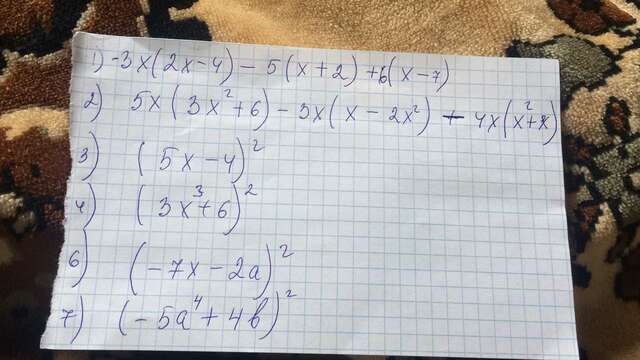 1) -3x(2x-4)-5(x+2)+6(x-7)
2) 5x(3x²+6)-5x(x-2x²)+4x(x²+x)
3) (5x-4)²
4) (3x³+6)²
6) (-7x-2a)²
7) (-5a⁴+4b)²